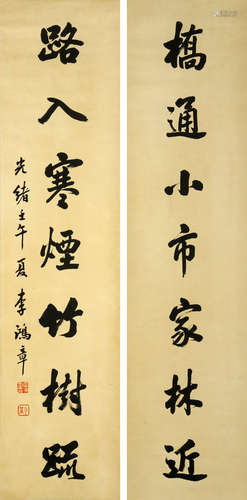 橋通小市家林近
路入寒煙竹樹疏
光緒壬午夏李鴻章